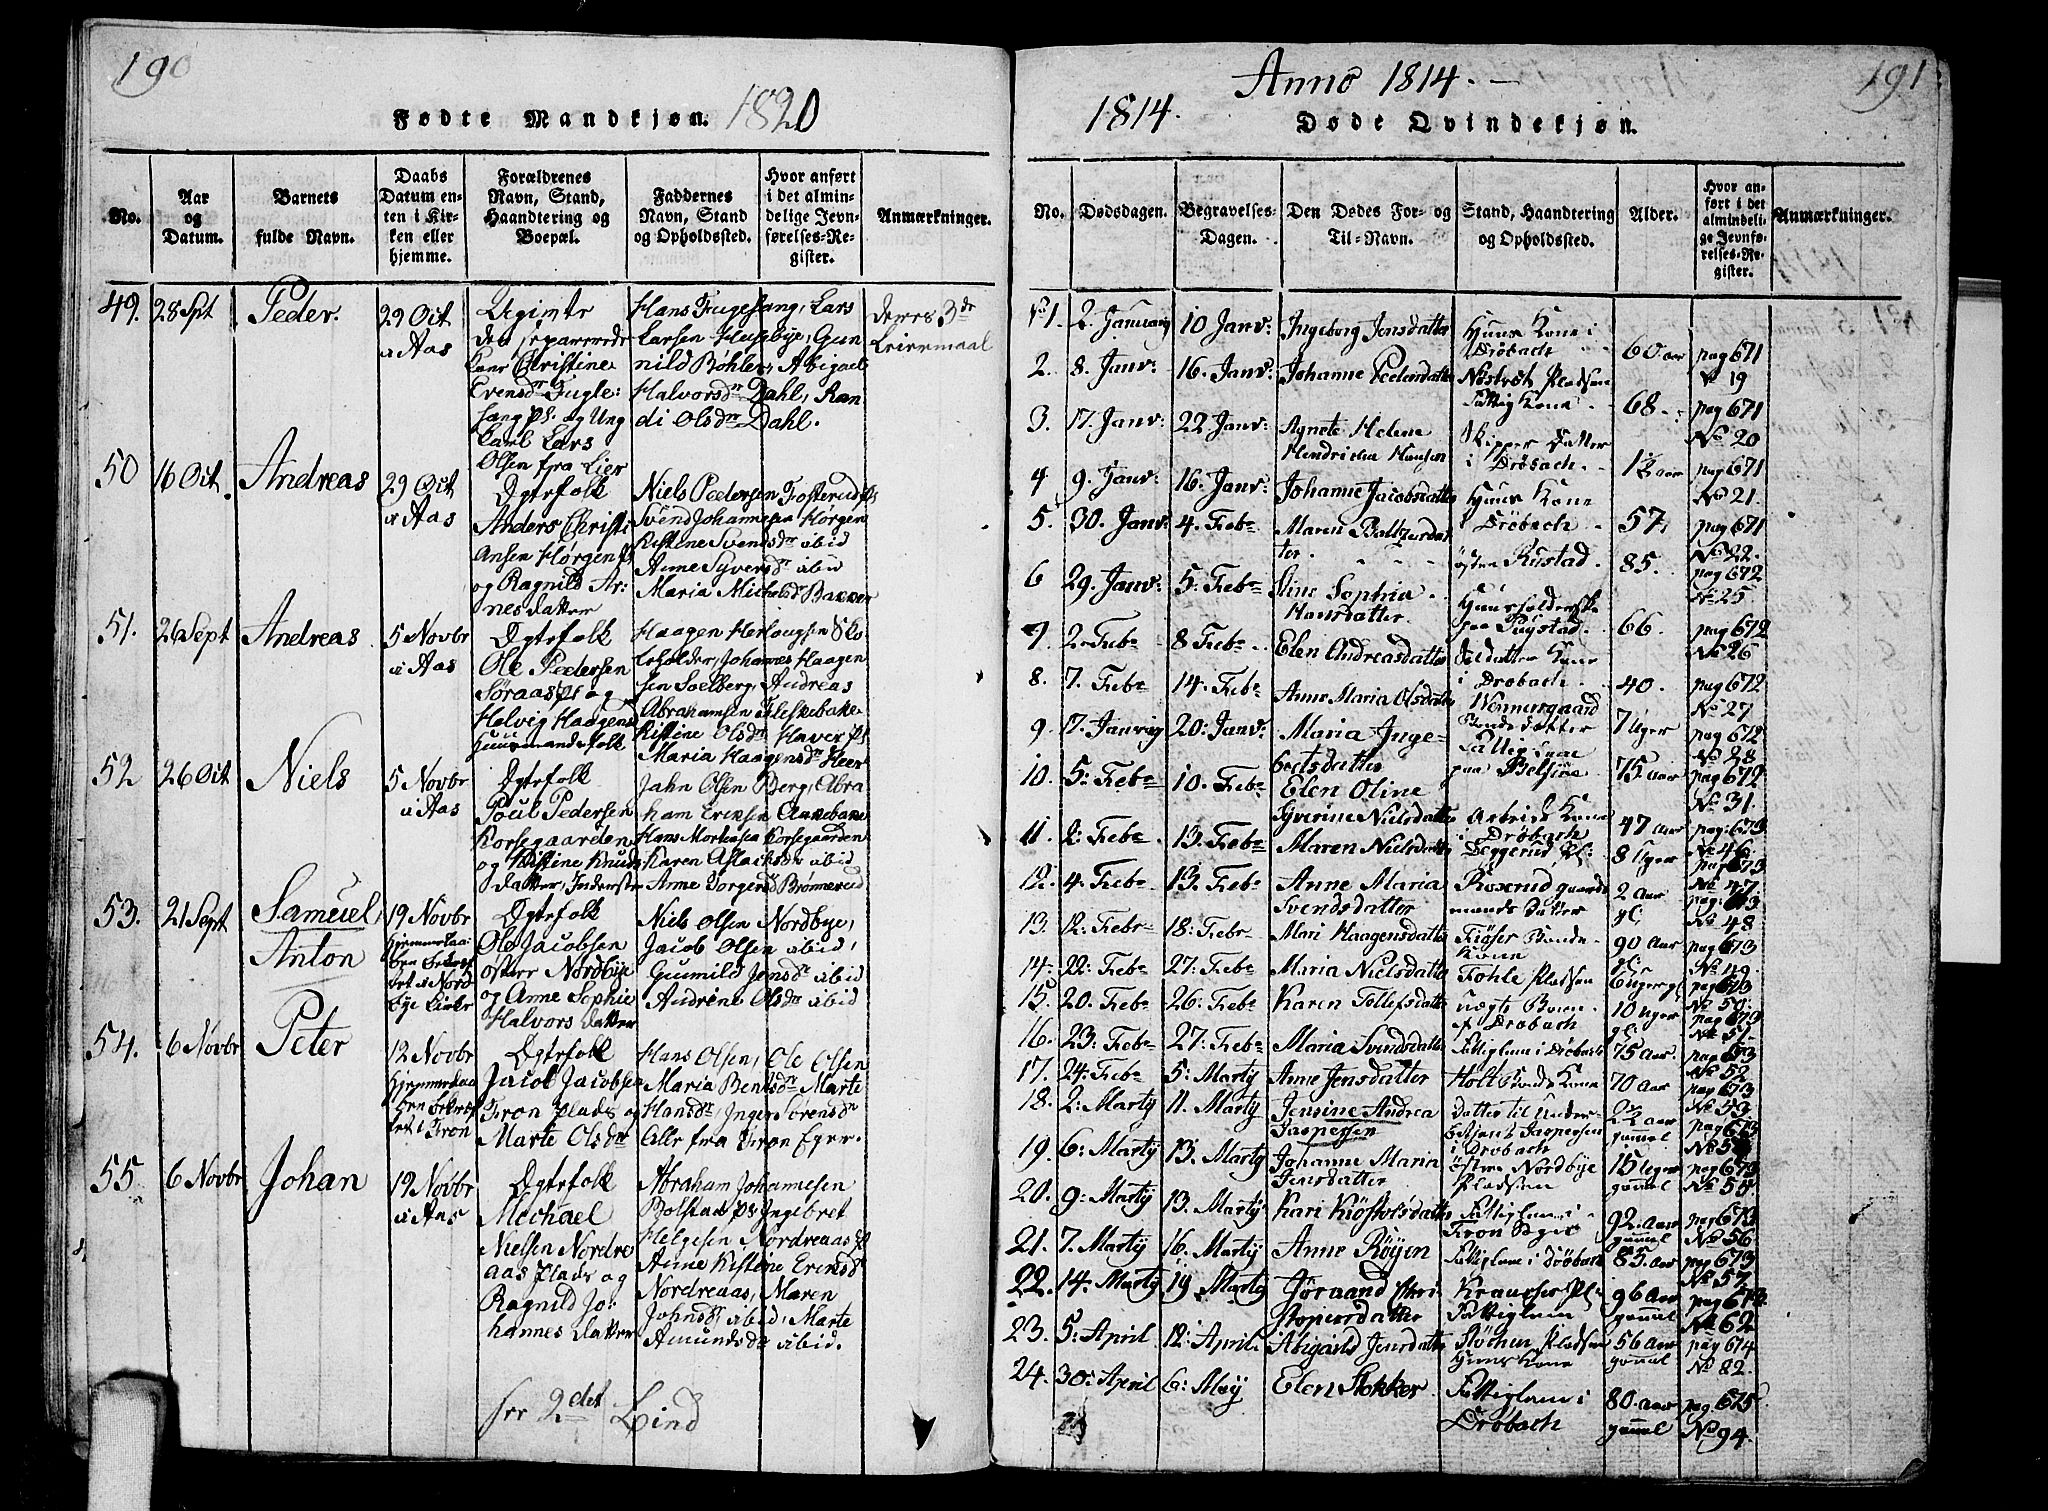 190
Fødte Mandkjøn. 1820
No.
Aar og Datum.
Barnets fulde Navn.
Daabs Datum enten i Kirken eller hjemme.
Forældrenes Navn, Stand, Haandtering og Boepæl.
Faddernes Navn, Stand og Opholdssted.
Hvor anført i det almindelige Jevnførelses-Register.
Anmærkninger.
49. 28 Spt Peder. 29 Oct i Aas
Ugivte
Christine
Evensdr Fugle:
sang ps. og Ung
Karl Lars
Olsen fra Lier
Hans Fuglesang, Lars
Larsen Husebye, Gun
nild Bøhler, Abigael
Halvorsdr Dahl, Ran
di Olsdr Dahl.
deres 3de
Leiermaal
50 16 Oct. Andreas 29 Oct i Aas
Ægtefolk
Anders Christi
Ansen Hørgen ps
og Ragnild Ar:
nesdatter
Niels Pedersen Fosterud ps
Svend Johannesen Hørgen
Kistine Svendsdr ibid
Anne Syversdr ibid
Maria Michelsdr Bakken
51. 26 Sept Andreas 5 Novbr i Aas
Ægtefolk
Ole Pedersen
Søraas ps og
Helvig Haagens
Huusmandsfolk
Haagen Herlougsen Sko
leholder, Johannes Haagen
sen Solberg, Andreas
Abrahamsen Fleskebake
Kistine Olsdr Haver ps
Maria Haagensdr Heer
52 26 Oct Niels 5 Novbr i Aas
Ægtefolk
Poul Pedersen
Korsegaarden
og Kistine Knuds
datter, Inderster
Jahn Olsen Berg, Abra
ham Eriksen Ankebake
Hans Mortensen Korsegaarden
Karen Aslachsdr ibid
Anne Torgersd Brønnerud
53. 21 Sept Samuel, Anton 19 Novbr
Ægtefolk
Ole Jacobsen
østere Nordbye
og Anne Sophie
Halvors datter
Niels Olsen Nordbye,
Jacob Olsen ibid,
Gunnild Jensdr ibid
Andrine Olsdr ibid
54. 6 Novbr Peter 12 Novbr
Ægtefolk
Jacob Jacobsen
Fron Plads og
Marte Olsdr
Hans Olsen, Ole Olsen
Maria Bentsdr Marte
Hansdr, Inger Sørensdr
alle fra Fron Eger.
55 6 Novbr Johan 19 Novbr i Aas
Ægtefolk
Michael
Nielsen Nordre
aas Plads og
Ragnild Jo:
hannes datter
Abraham Johannesen
Bølstad ps, Ingebret
Helgesen Nordreaas ps
Anne Kistine Evensdr
Nordreaas, Maren
Johnsdr ibid, Marte
Amundsdr ibid.
see 2det Bind
Anno 1814.
191
1814. Døde Qvindekjøn.
No.
Dødsdagen.
Begravelses-Dagen.
Den Dødes For- og Til-Navn.
Stand, Haandtering og Opholdssted.
Alder.
Hvor anført i det almindelige Jevnførelses-Register.
Anmærkninger.
No 1. 2. January 10 Janv: Ingeborg Jensdatter Huus Kone i Drøbach 60 aar pag 671 No 19
2. 8. Janv: 16. Janv: Johanne Pedersdatter Pladsen Fattig Kone 68. pag 671 No. 20
3. 17. Janv: 22 Janv: Agnete Helene Hendricha Hansen Skipper Datter i Drøbach. 1½ aar pag 671 No. 21.
4 9. Janv: 16. Janv: Johanne Jacobsdatter Huus Kone i Drøbach 57. pag 671 No. 22.
5. 30. Janv: 4. Febr Maren Baltzersdatter. østen Rustad. 85. pag 672 No 25
6 29. Janv: 5. Febr Stine Sophia Hansdatter Huusholderske paa Rustad. 66. pag 672 No 26
7 2. Febr 8 Febr Elen Andreasdatter Soldatter Kone i Drøbach. 40. pag 672 No. 27
8. 7. Febr 14. Febr Anne Maria Olsdatter Wennersgaard 7 Uger pag 672 No. 28
9. 17. January 20: Janv: Maria Ingebretsdatter Fattig Lem paa 75 aar pag 672 No. 31.
10. 5: Febr 10. Febr Elen Oline Syverine Nielsdatter Arbeids Kone i Drøbach 47 aar pag: 673 No 46
11. 2: Febr 13. Febr Maren Nielsdatter Seggerud Pl: 8 Uger pag 673 No. 47.
12. 4. Febr 13. Febr Anne Maria Svendsdatter gaardmands Datter 2 aar gl: pag: 673 No 48
13. 12. Febr 18: Febr Mari Haagensdatter Bonde Kone 90 aar gl: pag 673 No 49
14. 22: Febr 27: Febr Maria Nielsdatter Fohle Pladsen 6 uger gl pag 673 No 50:
15. 20: Febr 26: Febr Karen Tollefsdatter uægte Barn af Drøbach 10 uger gl: pag 673 No 51.
16. 23: Febr 27: Febr Maria Svendsdatter Fattiglem i Drøbach 75 aar. pag 673 No 52
17. 24: Febr 5: Martÿ Anne Jensdatter Kone 70 aar pag 673 No 53
18. 2: Martÿ 11. Martÿ Jensine Andrea Jaspersen datter til Under Jaspersen i Drøbach aar gammel pag 673
19. 6: Martÿ 13. Martÿ Johanne Maria Jensdatter østre Nordbye Pladsen 15 uger gammel pag 673 No 55.
20. 9: Martÿ 13. Martÿ Kari Kiöstolsdatter Fattiglem i Fron Eger 92. aar gammel pag 673 No 56
21. 7. Martÿ 16. Martÿ Anne Røyen Fattiglem i Drøbach 85. aar pag 673 No 57
22. 14. Martÿ 19 Martÿ Jøraand Christophersdatter Pl: Fattiglem 96 aar gammel pag 674 No 62
23. 5: April 12: April. Abigaild Jensdatter Pladsen Huus Kone 56 aar gammel pag 674 No. 82.
24. 30: April 6: May Elen Stokker Fattiglem i Drøbach 80. aar gammel pag. 675 No 94.